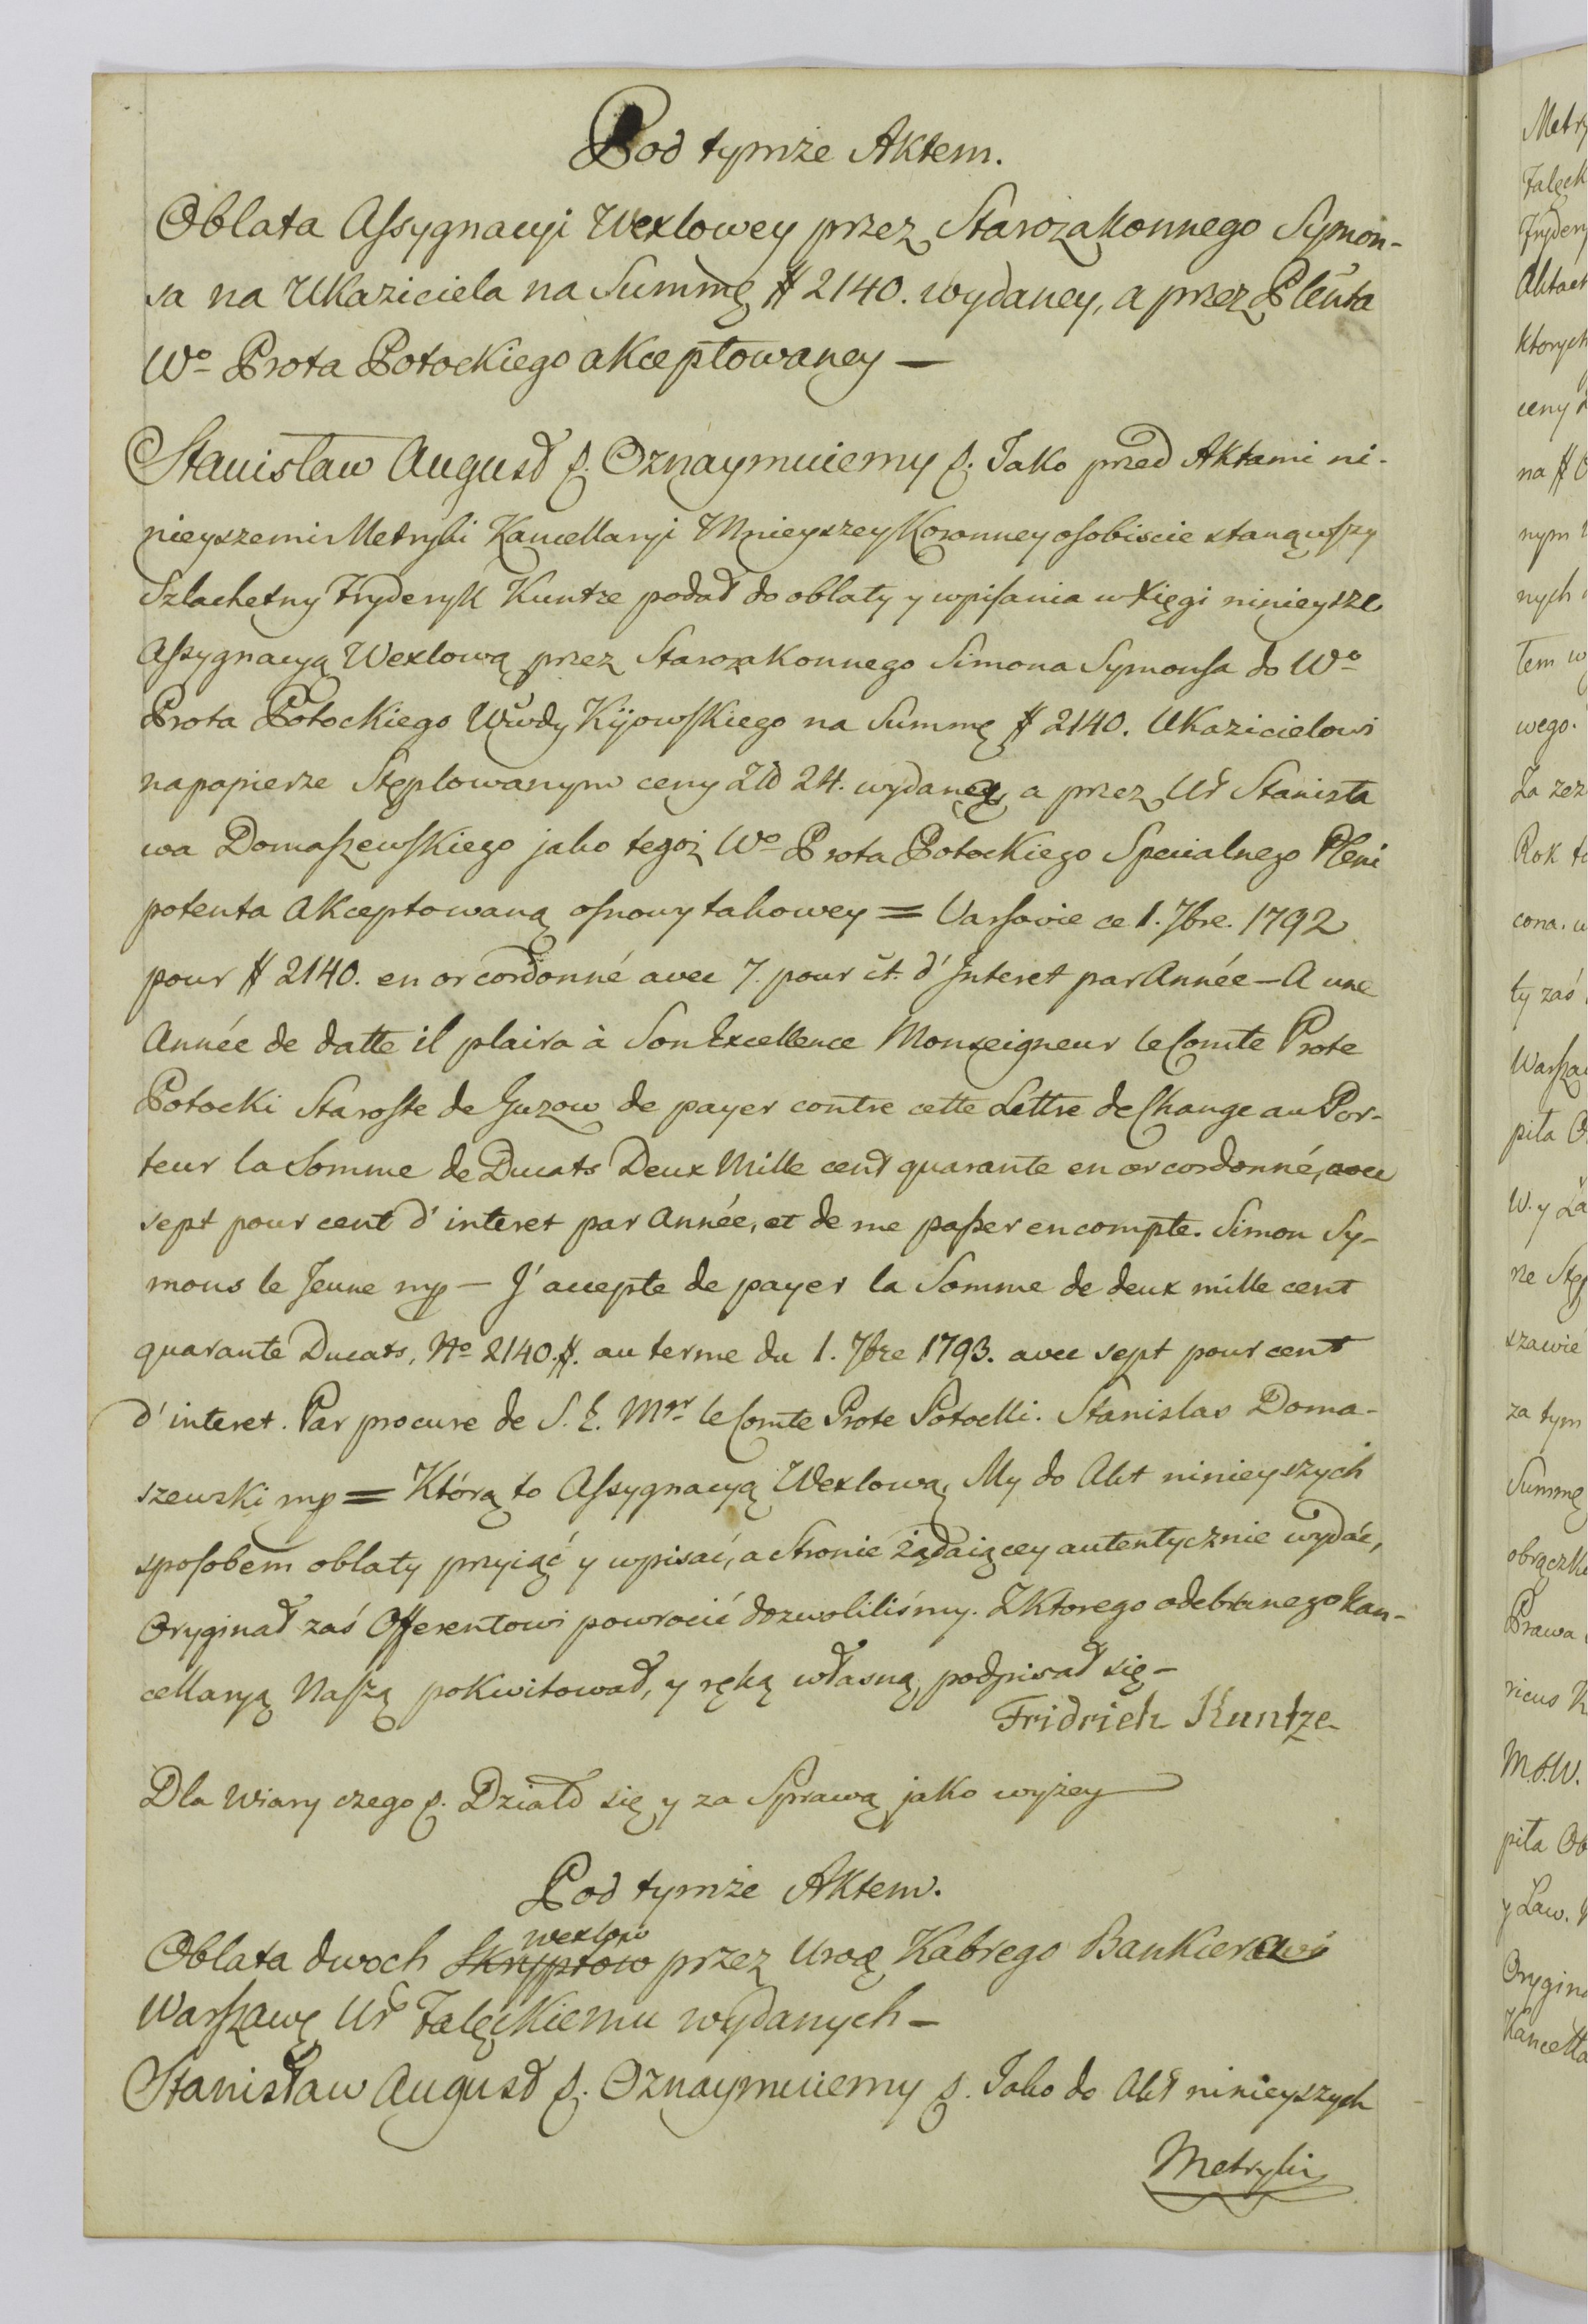 Pod tymże Aktem.
Oblata Assygnacyi Wexlowey przez Starozakonnego Symon-
sa na Ukaziciela na Summę # 2140. wydaney, a przez Pleñta
Wo Prota Potockiego akceptowaney —
Stanisław August &. Oznaymuiemy &. Jako przed Aktami ni-
nieyszemi Metryki Kancellaryi Mnieyszey Koronney osobiscie stanąwszy
Szlachetny Fryderyk Kuntze podał do oblaty y wpisania w Xięgi ninieysze
Assygnacyą Wexlową przez Starozakonnego Simona Symonsa do Wo
Prota Potockiego Wwdy Kijowskiego na Summę # 2140. Ukazicielowi
na papierze Stęplowanym ceny Zł 24. wydaną, a przez Ur Stanisła
wa Domaszewskiego jako tegoż Wo Prota Potockiego Specialnego Pleni
potenta Akceptowaną osnowy takowey = Varsovie ce 1. 7bre. 1792
pour # 2140. en or cordonné avec 7. pour ct. d'Interet par Année — A une
Année de datte il plaira à Son Excellence Monseigneur le Comte Prote
Potocki Staroste de Guzow de payer contre cette Lettre de Change au Por-
teur la Somme de Ducats Deux Mille cent quarante en or cordonné, avec
sept pour cent d'interet par Année, et de me passer en compte. Simon Sy-
mons le Jeune mp — J'accepte de payer la Somme de deux mille cent
quarante Ducats, No 2140 #. au terme du 1. 7bre 1793. avec sept pour cent
d'interet. Par procure de S. E. Mgr le Comte Prote Potocki. Stanislas Doma-
szewski mp = Którą to Assygnacyą Wexlową, My do Akt ninieyszych
sposobem oblaty przyiąć y wpisać, a Stronie żądaiącey autentycznie wydać,
Oryginał zaś Offerentowi powrocić dozwoliliśmy. Z Ktorego odebranego Kan-
cellaryą Naszą pokwitował, y ręką własną, podpisał się —
Fridrich Kuntze
Dla Wiary czego &. Działo się y za Sprawą jako wyżey
Pod tymże Aktem.
wexlow
Oblata dwoch Skryptow przez Uroą Kabrego Bankiera w
Warszawę Ur Falęckiemu wydanych —
Stanisław August &. Oznaymuiemy &. Jako do Akt ninieyszych
Metryki